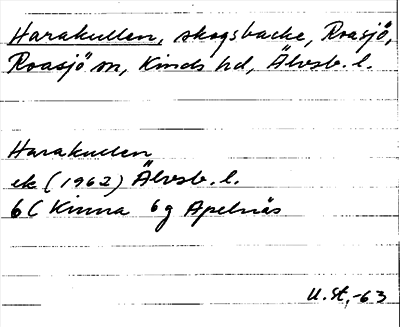 Harakullen, skogsbacke, Roasjö,
Roasjö sn, Kinds hd, Älvsb. l.
Harakullen
ek (1962) Älvsb. l.
6C Kinna 6g Apelnäs
U. St. -63